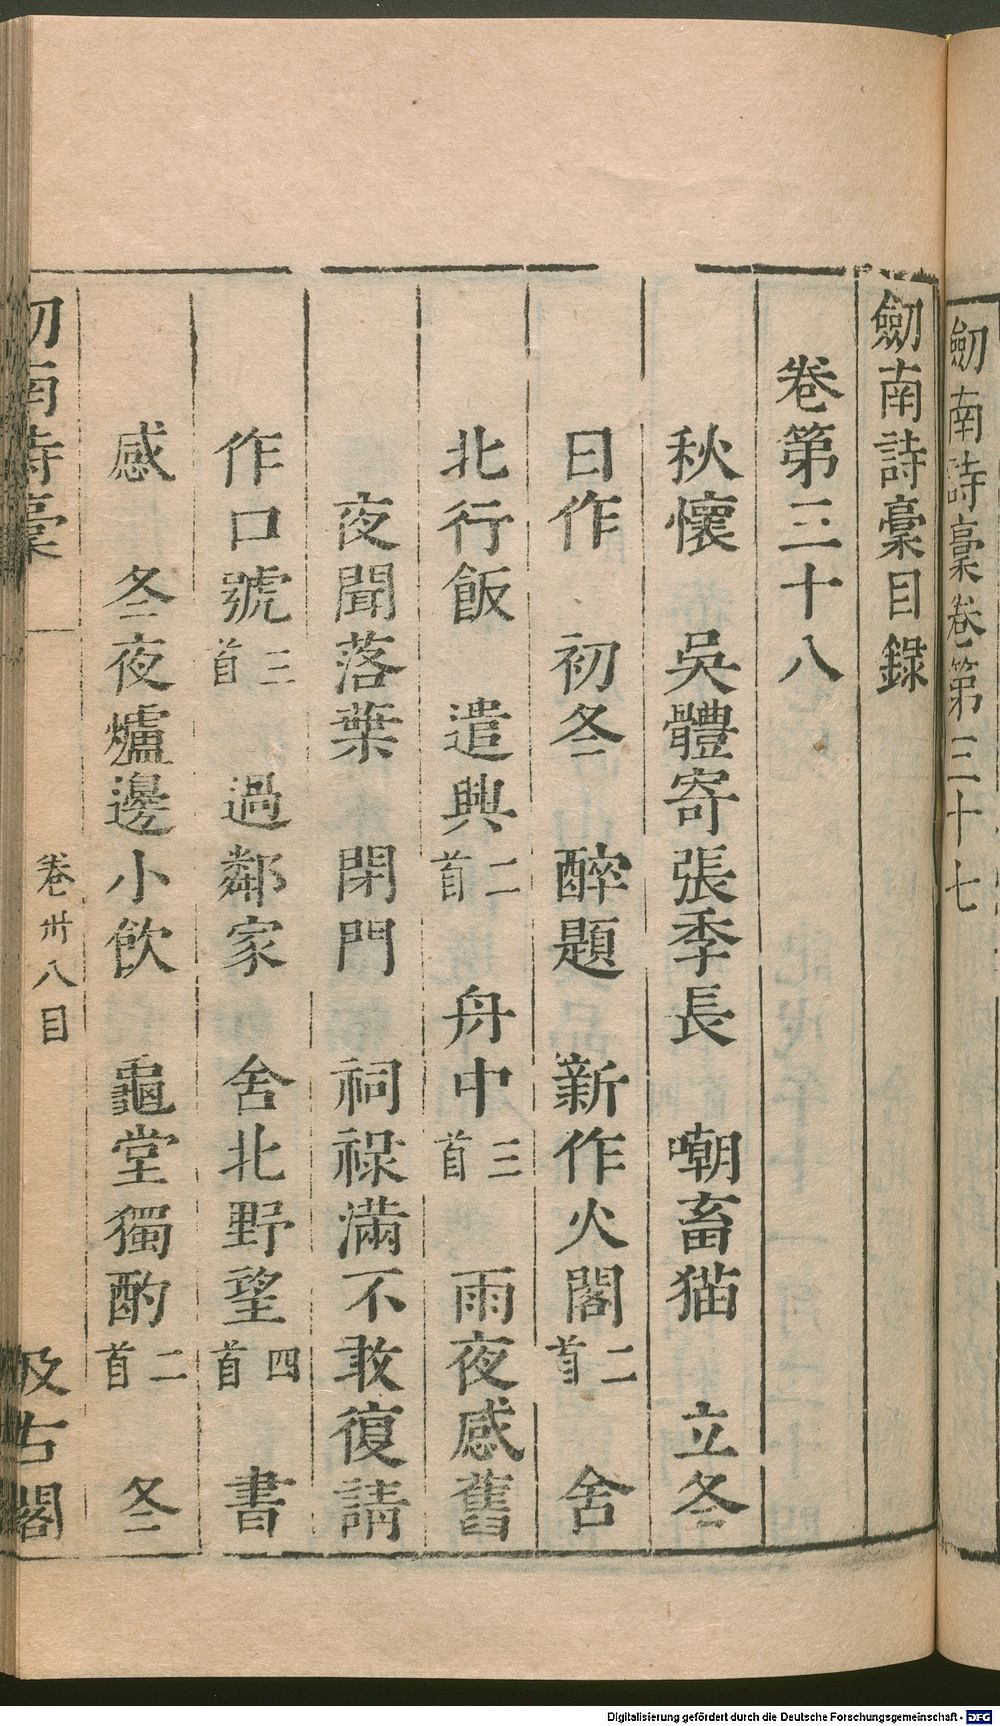 劒南詩稾卷第三十七
劒南詩稾目錄
卷第三十八
秋懷　吳體寄張季長　嘲畜猫　立冬
日作　初冬　醉題　新作火閣二首　舍
北行飯　遣興二首　舟中三首　雨夜感舊
夜聞落葉　閉門　祠祿滿不敢復請
作口號三首　過鄰家　舍北野望四首　書
感　冬夜爐邊小飲　龜堂獨酌二首　冬
劒南詩稾　卷卅八目　汲古閣
Digitalisierung gefördert durch die Deutsche Forschungsgemeinschaft - DFG